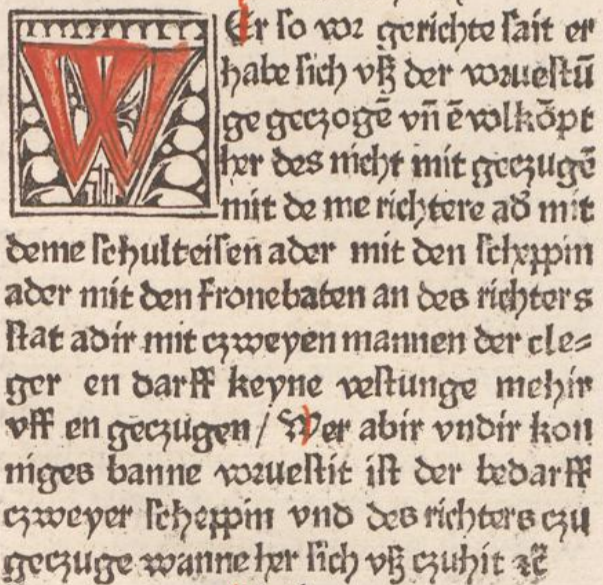 WEr so vor gerichte sait er
habe sich vsz der voruestū
ge geczogē vn̄ ē volkōpt
her des nicht mit geczugē
mit de me richtere ad' mit
deme schulteisen ader mit den scheppin
ader mit den fronebaten an des richters
stat adir mit czweyen mannen der cle=
ger en darff keyne vestunge mehir
vff en geczugen / Wer abir vndir kon
niges banne voruestit ist der bedarff
czweyer scheppin vnd des richters czu
geczuge wanne her sich vsz czuhit ꝛc̄